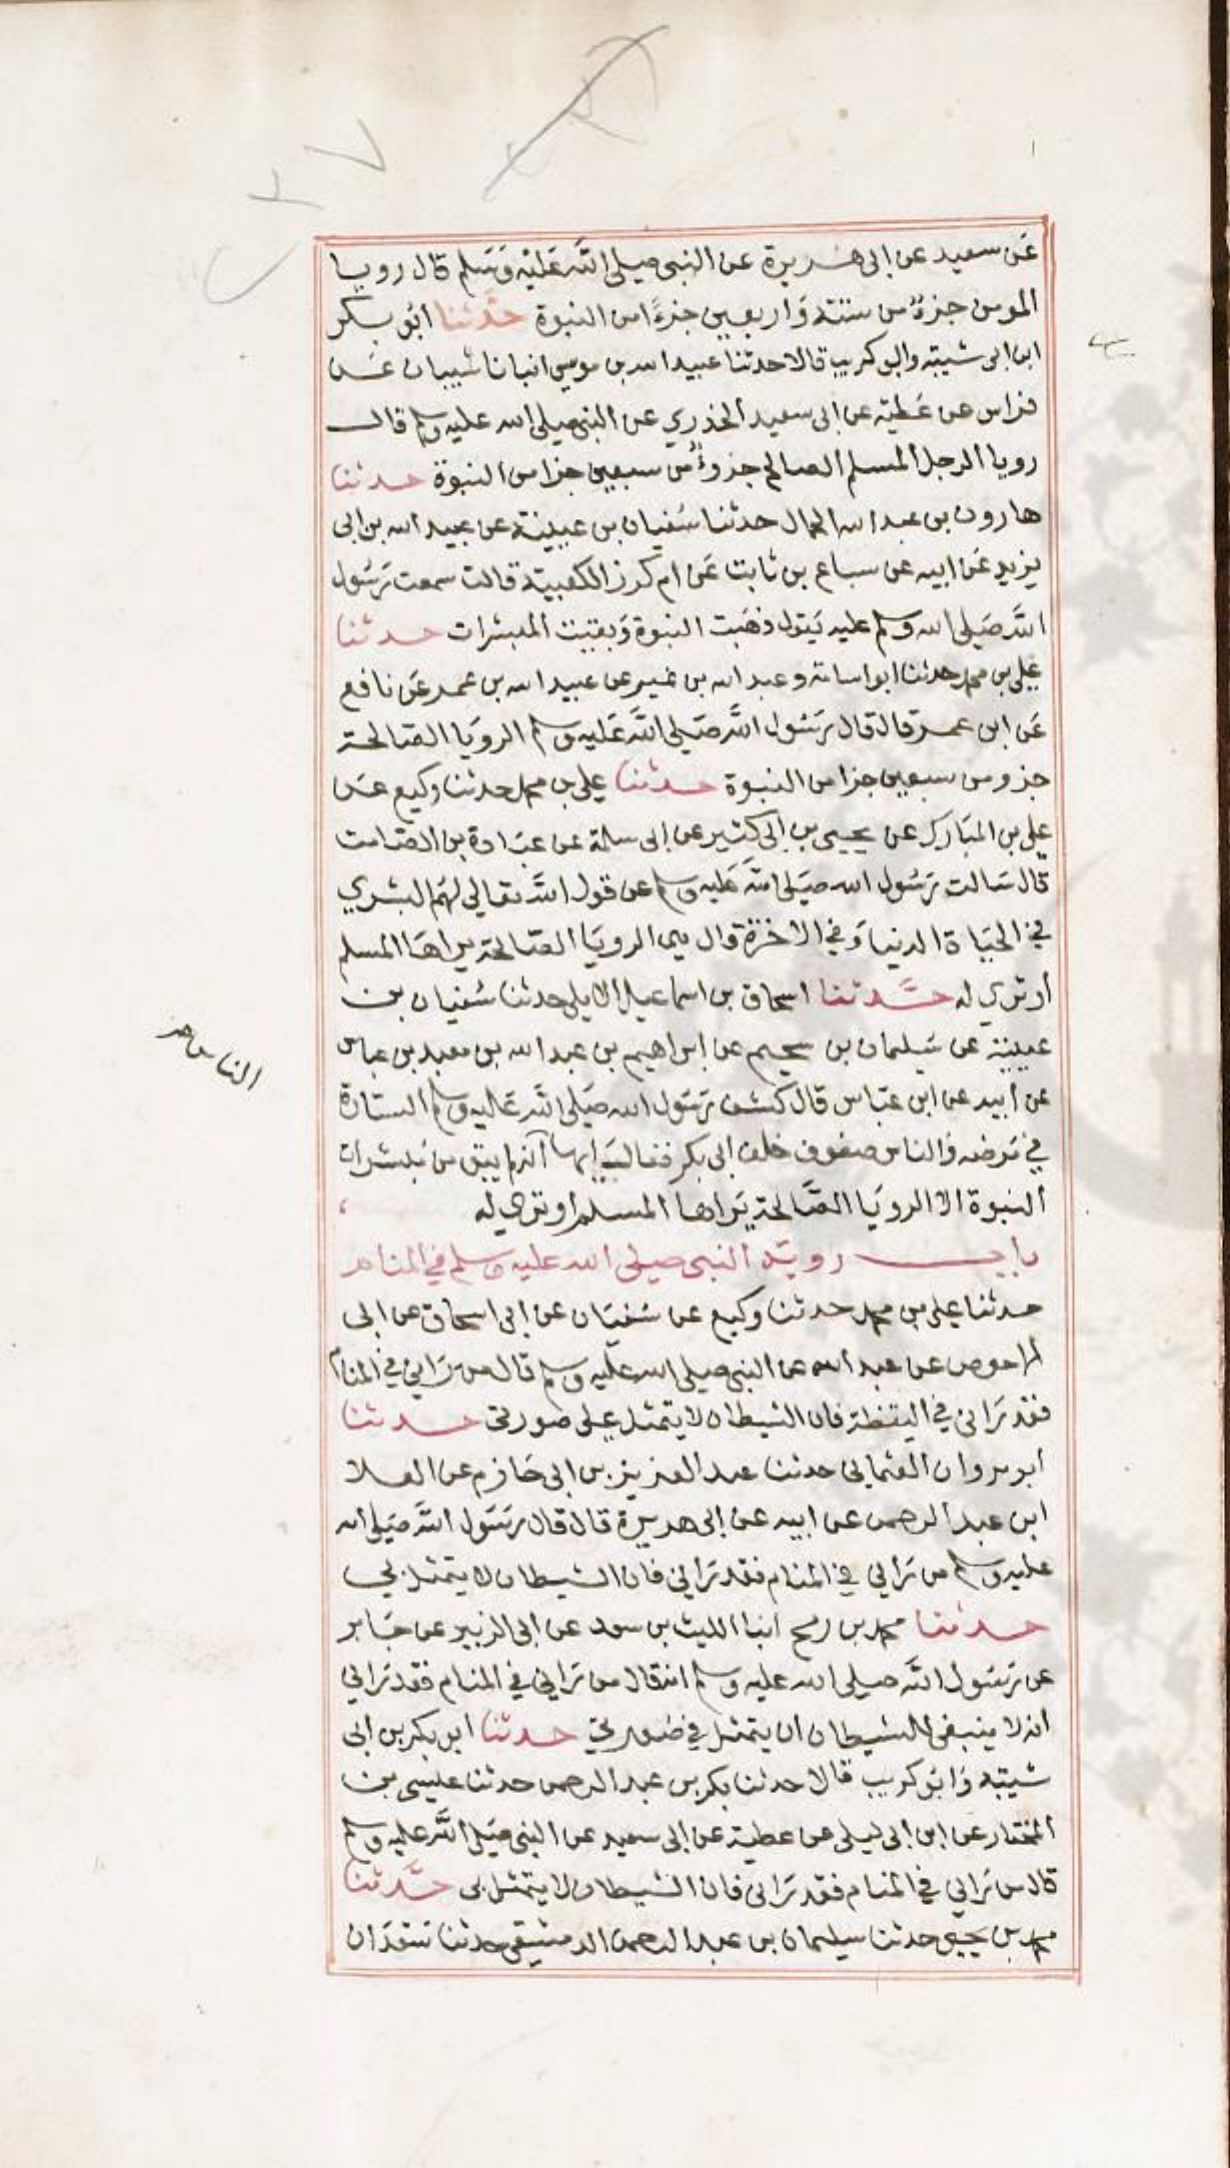 عَن سعيد عن ابى هـريرة عن النبى صيلى اللَّه عَليْه وَسَلم قال رويا
المومن جزءٌ من ستته وَاربعين جزءًا من النبوة حدَّثنا ابُو بكر
ابن ابى شيبته وابو كريب قالا حدثنا عبيد الله بن موسى انبانا شيبان عَـن
فراس عن عَطيه عن ابى سعيد الخذري عن النبى صيلى الله عليه وسلم قالـ
رويا الرجل المسلم الصالح جزوءٌ من سبعين جزا من النبوة حـدثنا
هارون بن عبد الله الحمال حدثنا سُفيان بن عيينـة عن عبيد الله بن ابى
يزيد عَن ابيه عن سباع بن ثابت عَن ام كرز الكعبيته قالت سمعت رَسُول
اللَّه صَيلى الله وسلم عليه يَقول ذهَبت النبوة وَبقيت المبشرات حـدثنا
علي بن محمد حدثنا ابو اسامة وعبد الله بن نمير عن عبيد الله بن عمر عَن نافع
عَن ابن عمـر قال قال رَسُول اللَّه صَيلى اللَّه عَليه وسلم الرويَا الصَالحتـ
جزو من سبعين جزا من النبوة حـدثنا علي بن محمد حدثنا وكيع عـن
علي بن المبَارك عن يحيى بن ابى كثير عن ابى سلمة عن عبَادة بن الصَامت
قال سَالت رَسُول الله صيَلى اللَّه عَليه وسلم عن قول اللَّه تعالي لهُم البشري
في الحيَاة الدنيا وَفي الاخرة قال هي الرويَا الصَالحة يراهَا المسلم
أو تري له حَـدثنا اسحاق بن اسماعيل الايلي حدثنا سُفيان بن
عيينة عن سَيلمان بن سحيم عن ابراهيم بن عبد الله بن معبد بن عباس
عن أبيه عن ابن عبَاس قال كشف رَسُول الله صيَلى اللَّه عَاليه وسلم الستارة
في مَرضه وَالناس صفوف خلف ابى بكر فقالـ ايها انه لم يبق من مُبشرات
ألنبوة الا الرويَا الصَّالحة يَراها المسلم او تري له
الناس صحـ
بابـــ رويَة النبى صيلى الله عليه وسلم في المنام
حدثنا علي بن محمد حدثنا وكيع عن سُفيَان عن ابى اسحاق عن ابى
الاحوص عن عبد الله عن النبى صيلى الله عليه وسلم قال من رَاني في المنام
فقد رَانى في اليقظة فان الشيطان لا يتمثل علي صورتى حـدثنا
أبو مروان العثمانى حدثنا عبد العزيز بن ابى حَازم عن العلا
ابن عبد الرحمن عن ابيه عن ابى هريرة قال قال رَسَول اللَّه صَيلى الله
عليه وسلم من رَانى في المنام فقد رَاني فان الشيطان لا يتمثل بى
حـدثنا محمد بن رمح انبا الليث بن سعد عن ابى الزبير عن جَابر
عن رَسَول اللَّه صيلى الله عليه وسلم انه قال من رَاني في المنام فقد رَانى
انه لا ينبغى للشيطان ان يتمثل في صُورتي حـدثنا ابو بكر بن ابى
شيبته وَابُو كريب قالا حدثنا بكر بن عبد الرحمن حدثنا عيسى بن
المختار عن ابن ابى ليلى عن عطية عن ابى سعيد عن النبى صَيلى اللَّه عليه وسلم
قال من رَانى في المنام فقد رَانى فان الشيطان لا يتمثل بى حَـدثنا
محمد بن يحيى حدثنا سيلمان بن عبد الرحمن الدمشيقى حدثنا سَعدَان